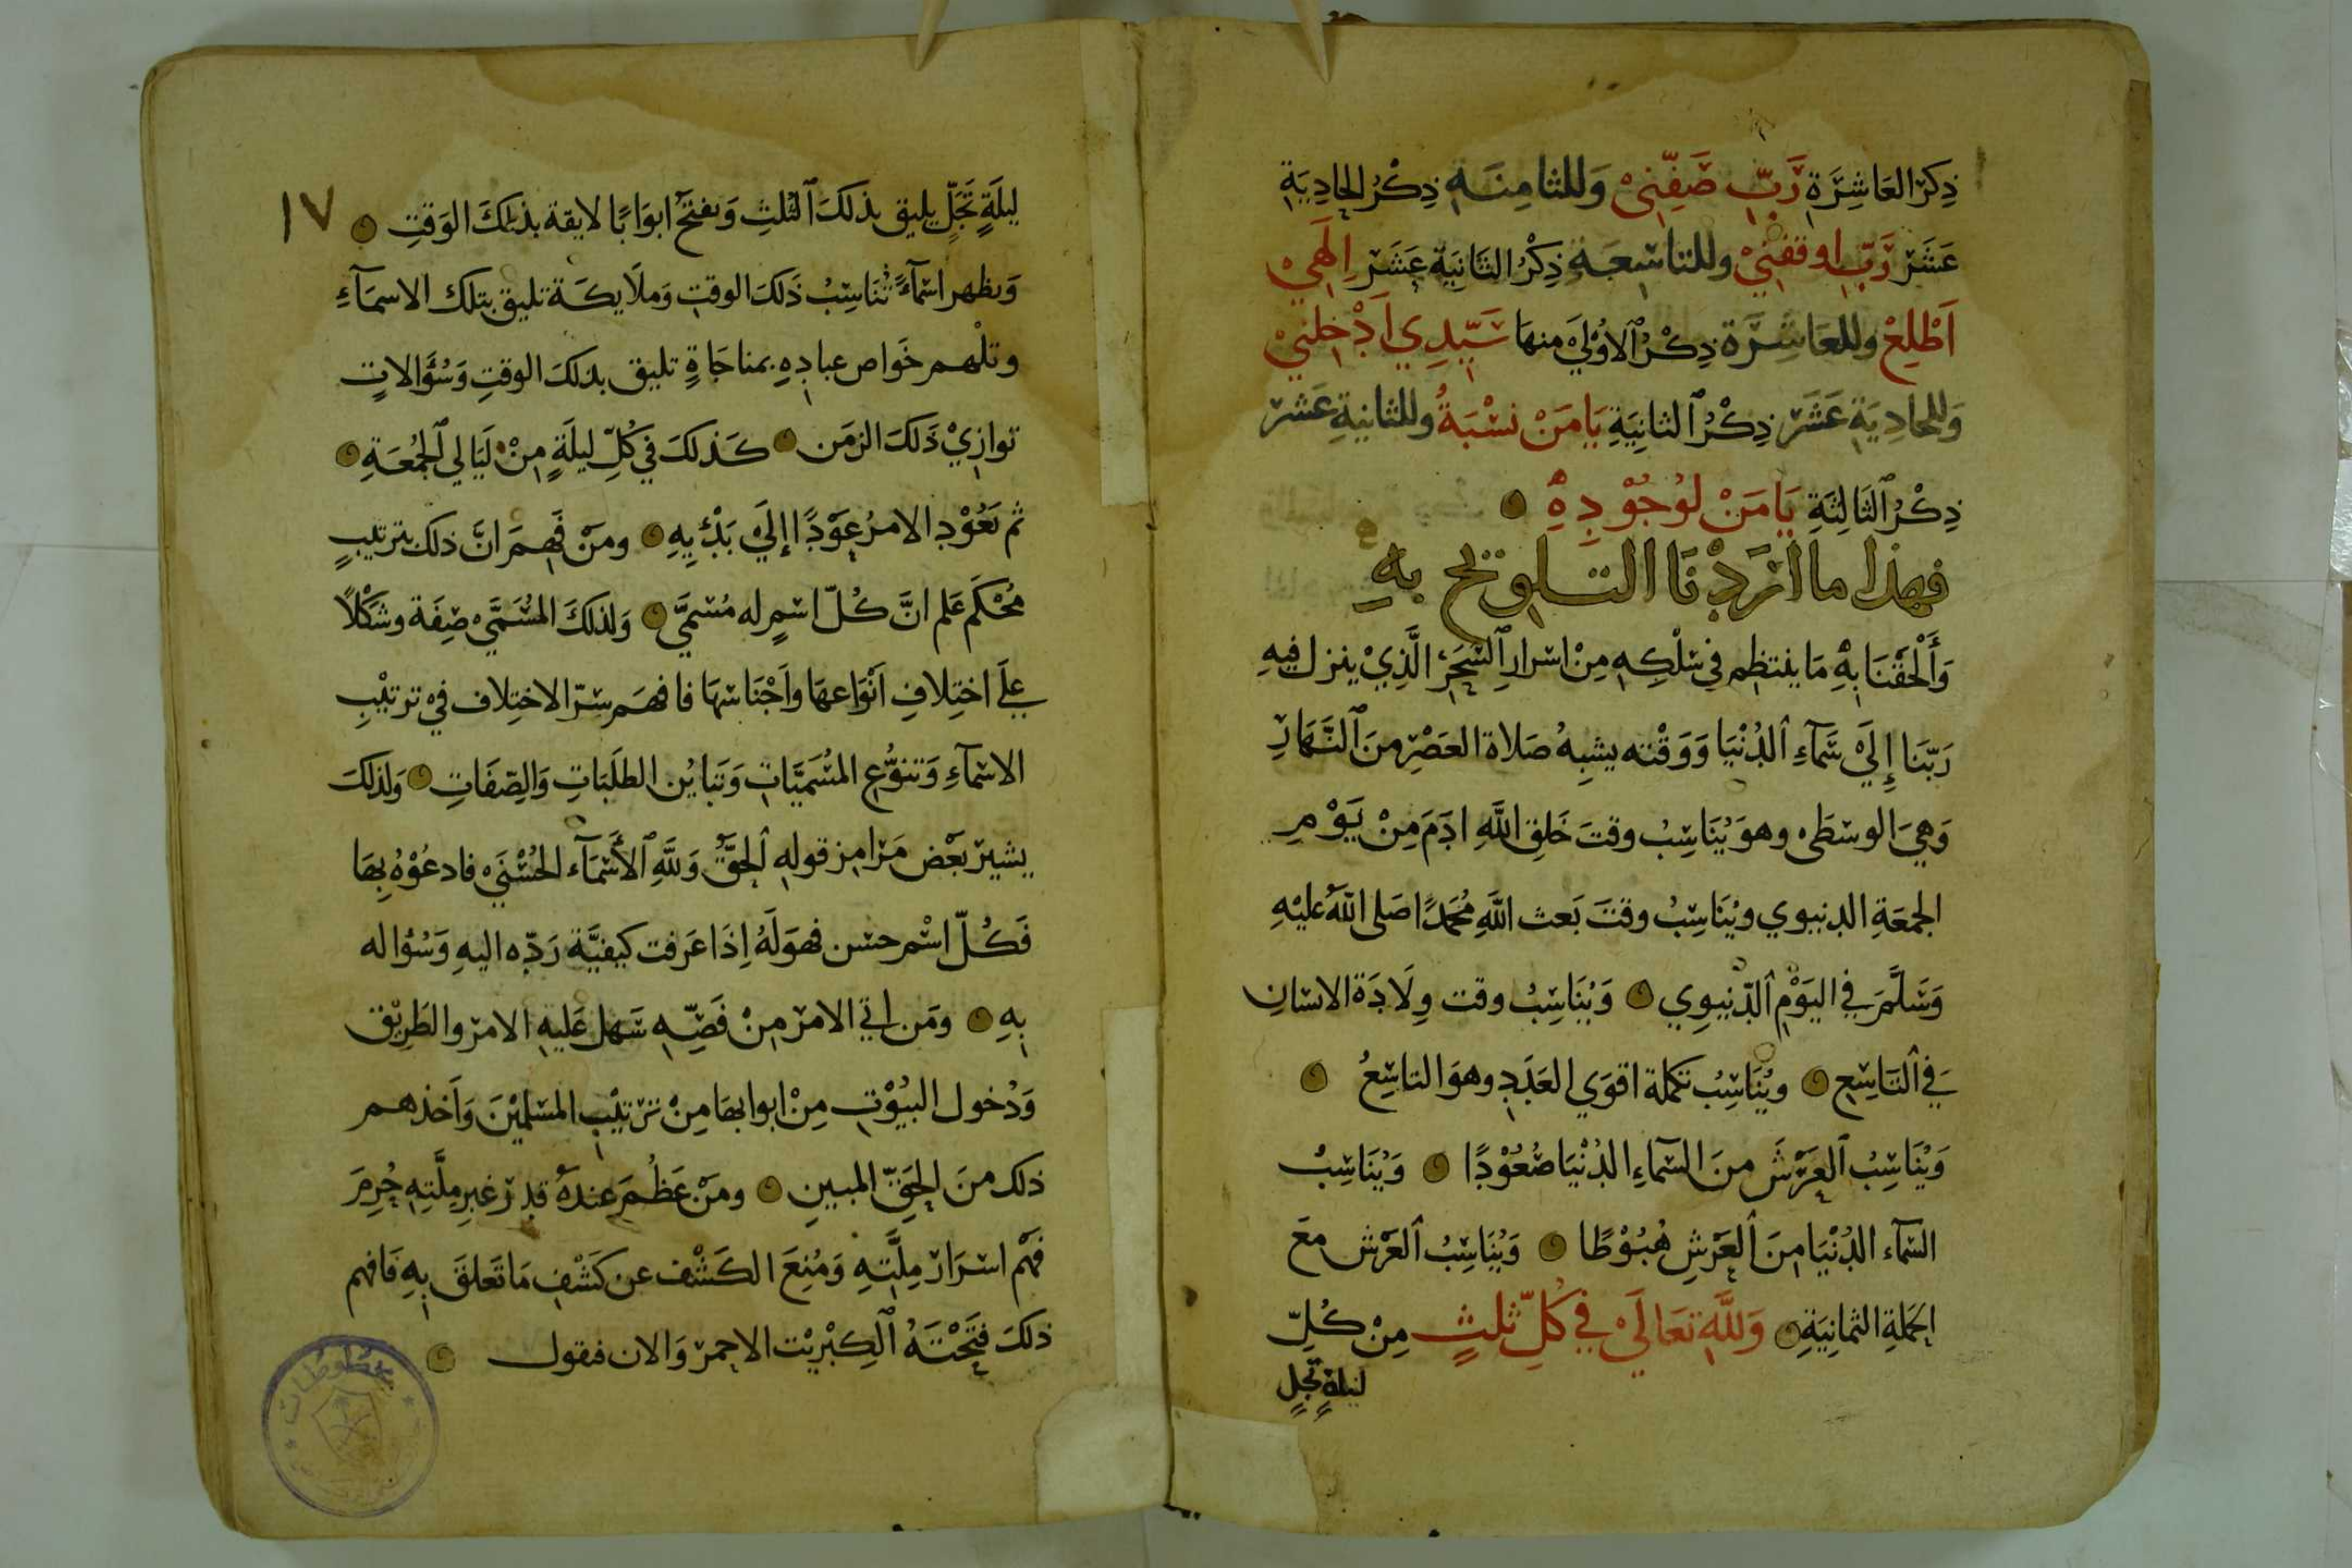 ذِكرُ العَاشِرَةِ رَبِّ صَفِّنِيْ وَللثامِنَةِ ذِكْرُ الحادِيَةِ
عَشَرْ رَبِّ اوقفنِيْ وللتاسِعَةِ ذِكْرُ الثانِيَةِ عَشَرَ اِلَهِيْ
اَطْلِعْ وللعَاشِرَة ذِكْرُ الاوْلَيْ منهَا سَيِّدِي اَدْخِلنِيْ
وَللحادِيَةِ عَشَرْ ذِكْرُ الثانِيَةِ يَامَنْ نسْبَةُ وللثانيةِ عَشرْ
ذِكْرُ الثَالِثَةِ يَامَنْ لوُجُوْدِهِ
فهذا ما ارَدْنَا التلويح بهِ
وَأَلْحَقْنَا بِهِ مَا ينتظِم فِي سْلكِهِ مِنْ اسْرارِ السَّحَرِ الَّذِيْ ينزل فيهِ
رَبّنَا إِلَيْ سَمَآءِ الدُنْيَا وَوَقْته يشبِهُ صَلاة العَصْرِ منَ النَّهَارِ
وَهيَ الوسْطَى وهوَ يُنَاسِبُ وقتَ خَلقِ اللَّهِ ادَمَ مِنْ يَوْمِ
الجمعَةِ الدنيوي ويُنَاسِبُ وقتَ بَعث اللَّهِ مُحَمدًا صَلى اللَّهُ عليْهِ
وَسَلَّمَ في اليَوْمِ الدّنيوِي وَيُنَاسِبُ وقت وِلَادَة الانسَانِ
في التَاسِعِ ويُنَاسِبُ تكملة اقوَي العَدَدِ وهوَ التاسِعُ
وَيُنَاسِبُ العَرْشَ منَ السَّمَاءِ الدُنْيَا صُعُوْدًا وَيُنَاسِبْ
السَّمَآء الدُنْيَا مِنَ العَرْشِ هُبُوْطًا وَيُنَاسِبُ العَرْش مَعَ
الحَملةِ الثمانِيَةِ وَللَّهِ تعَالَيْ في كُلِّ ثلثٍ مِنْ كُلِّ
ليلةٍ تجلٍ
١٧
ليلَةٍ تَجَلٍّ يليق بذلكَ الثلثِ وَيفتَحُ ابوَابًا لايقة بذلكَ الوَقتِ
وَيظهر اسْمَآءً تُنَاسِبُ ذَلكَ الوقتِ وَملَايكَة تليق بتلك الاسمَآءِ
وتلْهم خَواص عبادِهِ بمناجَاةٍ تليق بذلكَ الوقتِ وَسُؤَالاتٍ
توازِيْ ذَلكَ الزمَن كَذلكَ في كُلِّ ليلَةٍ مِنْ لَيَالي الجُمُعَةِ
ثم يَعُوْد الامرُ عِوَدًا إلَيْ بَدْئِهِ ومَنْ فَهِمَ انَّ ذلك بترتيبٍ
مُحْكَم عَلم انَّ كُلّ اسْمٍ له مُسَمَّي وَلذلكَ المُسَمَّي صِفَة وشَكْلاً
عَلَي اختِلافِ اَنْوَاعهَا واَجْنَاسْهَا فافهَم سِرّ الاختِلاف فيْ ترتيْبِ
الاسْمآءِ وَتنوُّع المُسَمَيَّاتِ وَتبَايُن الطلَبَاتِ وَالصِفَاتِ وَلذلكَ
يشيرْ بَعْض مَرَامِز قولهِ الحَقُّ وَللَّهِ الأَسْمَآء الحُسْنَيْ فادعُوْهُ بِهَا
فَكُلّ اسْم حسَن فهوَ لَهُ اِذَا عَرفت كيفيَّة رَدّه اليهِ وَسُؤاله
بِهِ ومَن اتي الامرْ مِنْ فَصِّهِ سَهل عَليهِ الامرْ والطَرِيْق
وَدُخول البيُوْتِ مِنْ ابوابهَا مِنْ ترْتيْبِ المسْلميْنَ وَاَخذهم
ذلك منَ الحَقِّ المبينِ ومَنْ عَظُمَ عندَهُ قدرْ غيرِ مِلَّتِهِ حُرِمَ
فهْم اسْرَارْ مِلَّتهِ وَمُنِعَ الكَشْف عن كَشْفِ مَا تَعلقَ بِهِ فَافهم
ذلكَ فتَحْتَهُ الكِبْرِيْت الاحمرْ وَالان فنقول
مخطوطات